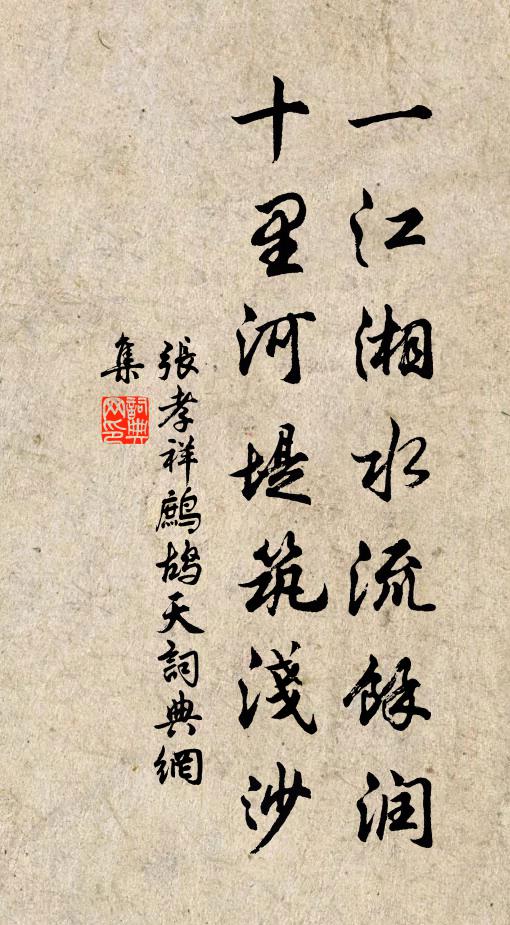 一江湘水流餘润
十里河堤筑淺沙
張孝祥鷓鴣天詞典網
集
詞典網印